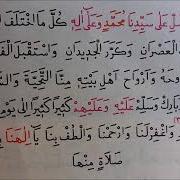 صَلِّ عَلٰى سَيِّدِنَا مُحَمَّدٍ وَعَلٰٓى اٰلِهٖ كُلَّ مَا اخْتَلَفَ
الْعَصْرَانِ وَكَرَّرَ الْجَدِيدَانِ وَاسْتَقْبَلَ الْفَ
وحَهُ وَاَرْوَاحَ اَهْلِ بَيْتِهٖ مِنَّا التَّحِيَّةَ وَال
بَارِكْ وَسَلِّمْ عَلَيْهِ وَعَلَيْهِمْ كَثِيرًا كَثِيرًا اِلٰى يَوْمِ
وَاغْفِرْلَنَا وَارْحَمْنَا وَالْطُفْ بِنَا يَآ اِلٰهَنَا
صَلَاةٍ مِنْهَا